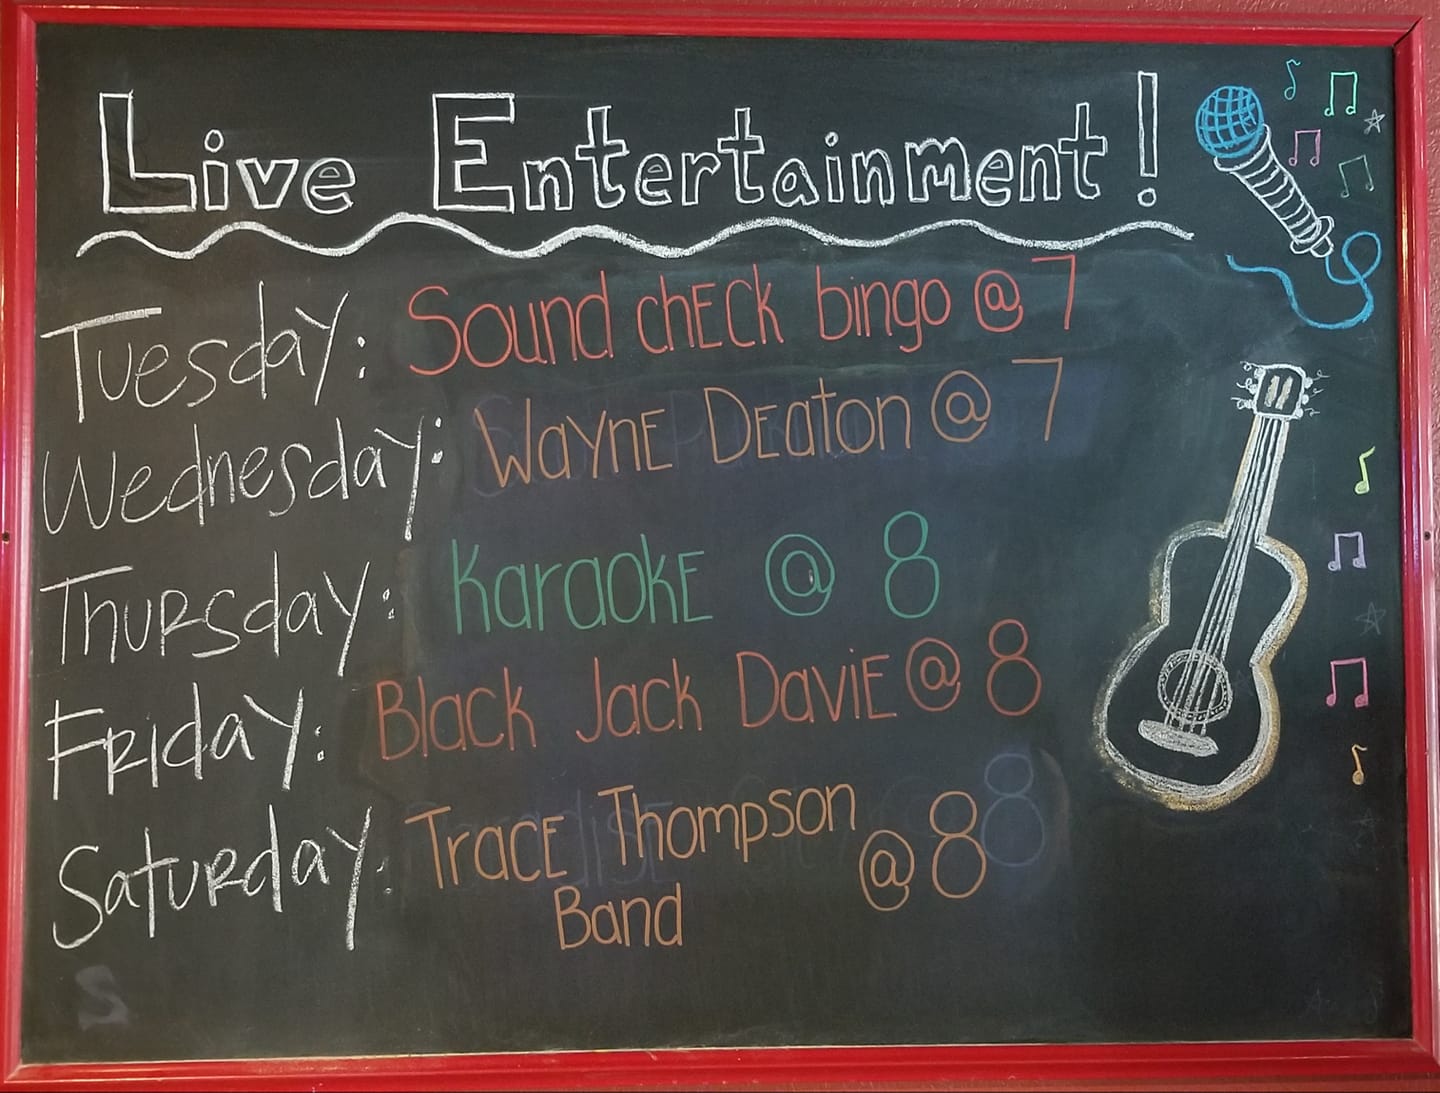 Live Entertainment!
Tuesday: Sound chECK bingo @ 7
Wednesday: WaYNE DEaton @ 7
ThuRsday: KaraoKE @ 8
FRiday: Black Jack DaviE @ 8
SatuRday: TracE Thompson @ 8
Band